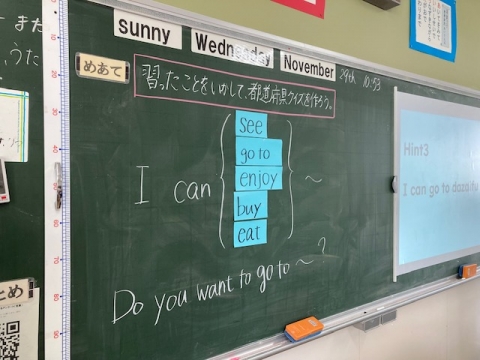 sunny Wednesday November 29th 10:53
めあて
習ったことをいかして、都道府県クイズを作ろう。
I can
see
go to
enjoy
buy
eat
～
Do you want to go to ～?
Hint3
I can go to dazaifu